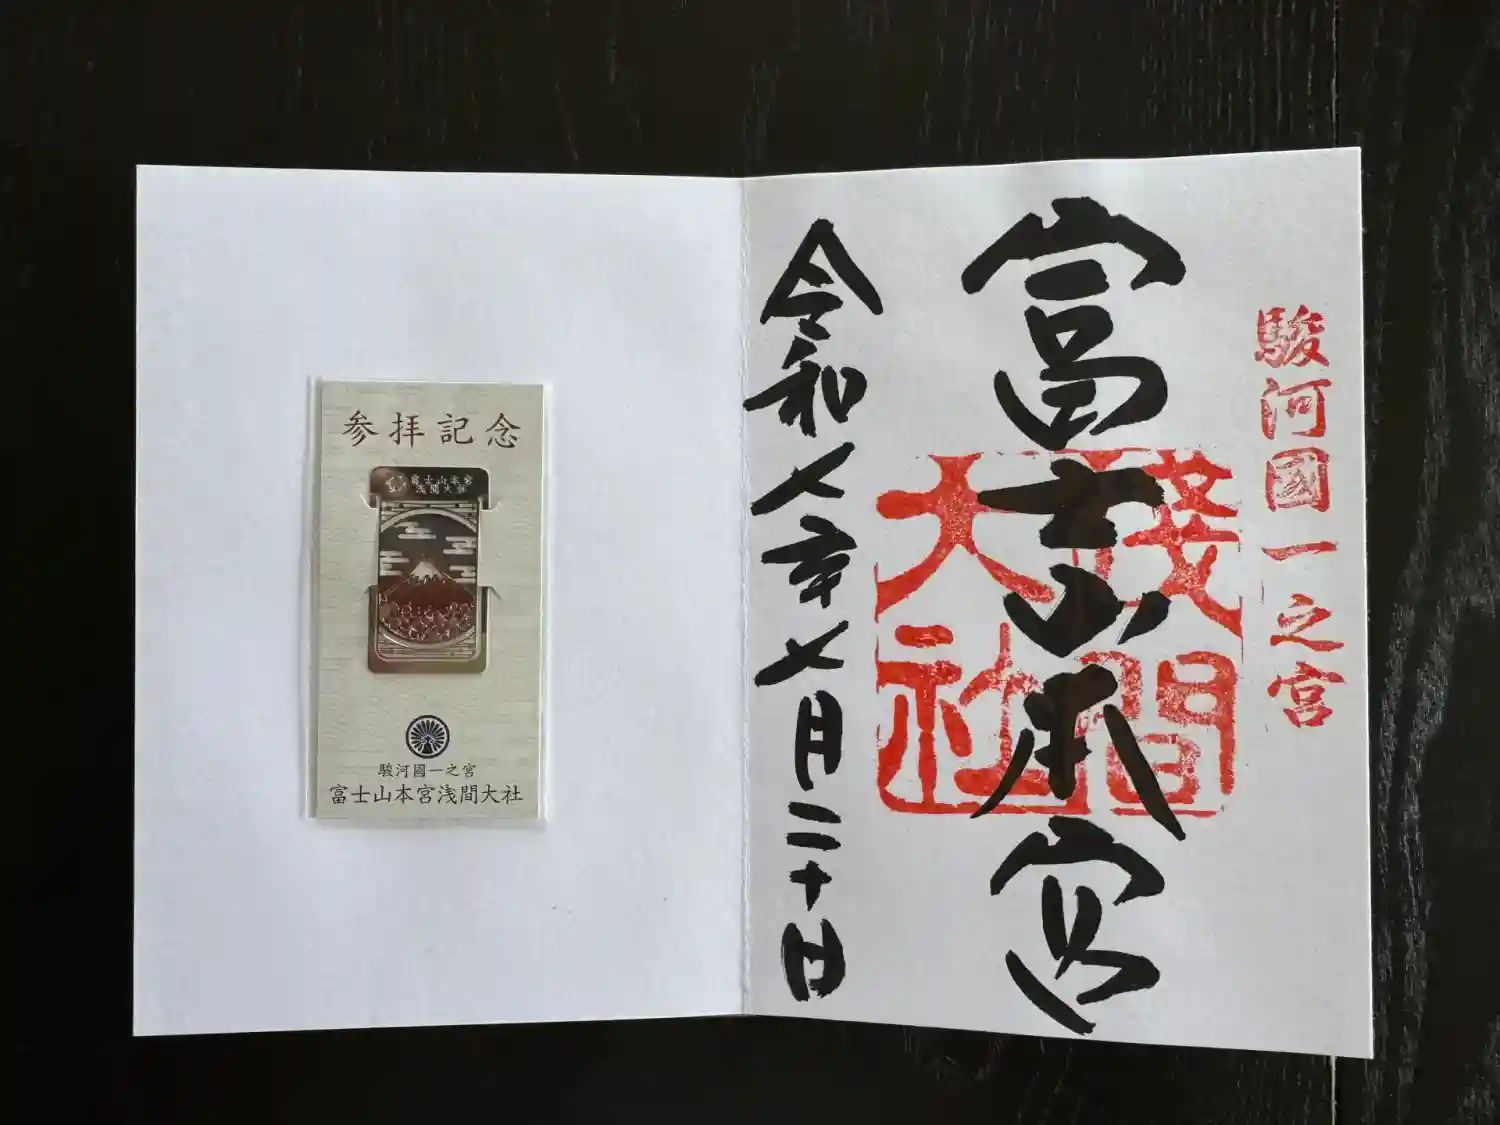 駿河國一之宮
富士山本宮
浅間大社
令和七年七月二十日
参拝記念
富士山本宮
浅間大社
駿河國一之宮
富士山本宮浅間大社